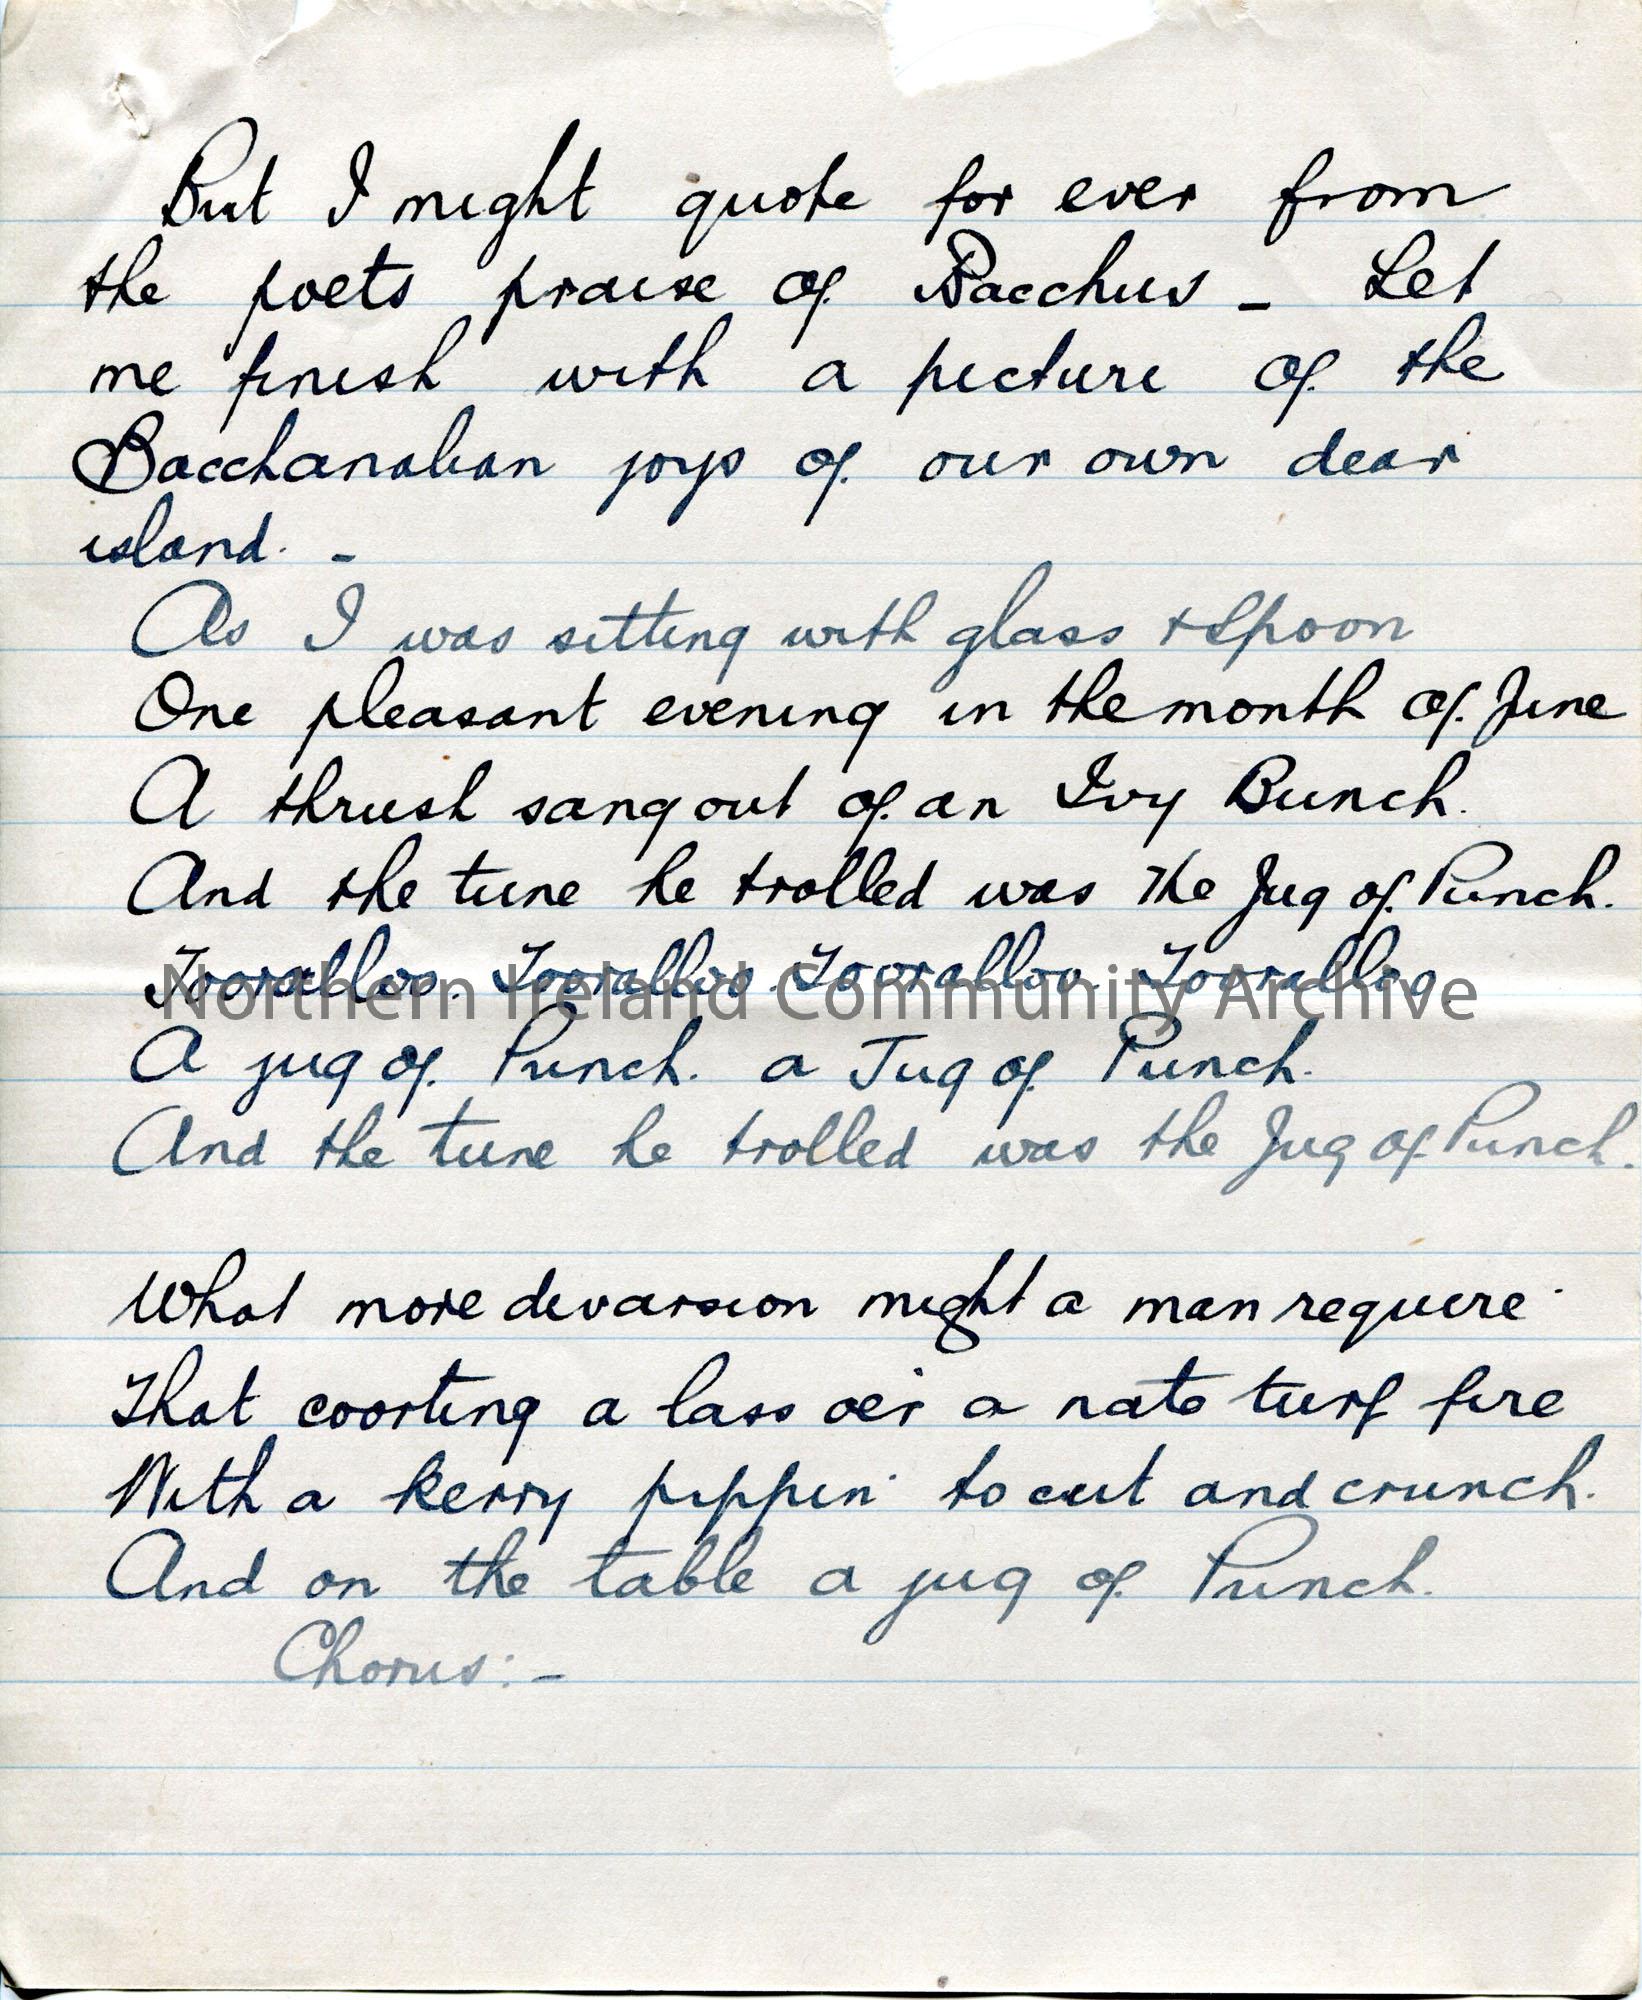 But I might quote for ever from
the poets praise of Bacchus – Let
me finish with a picture of the
Bacchanalian joys of our own dear
island. –
As I was sitting with glass + Spoon
One pleasant evening in the month of June
A thrush sang out of an Ivy Bunch.
And the tune he trolled was the Jug of Punch.
Tooralloo. Tooralloo. Tooralloo. Tooralloo.
Northern Ireland Community Archive
A jug of Punch. a Jug of Punch.
And the tune he trolled was the Jug of Punch.
What more devarsion might a man require
That coorting a lass oer a nate turf fire
With a kerry pippin to cut and crunch.
And on the table a jug of Punch.
Chorus:–